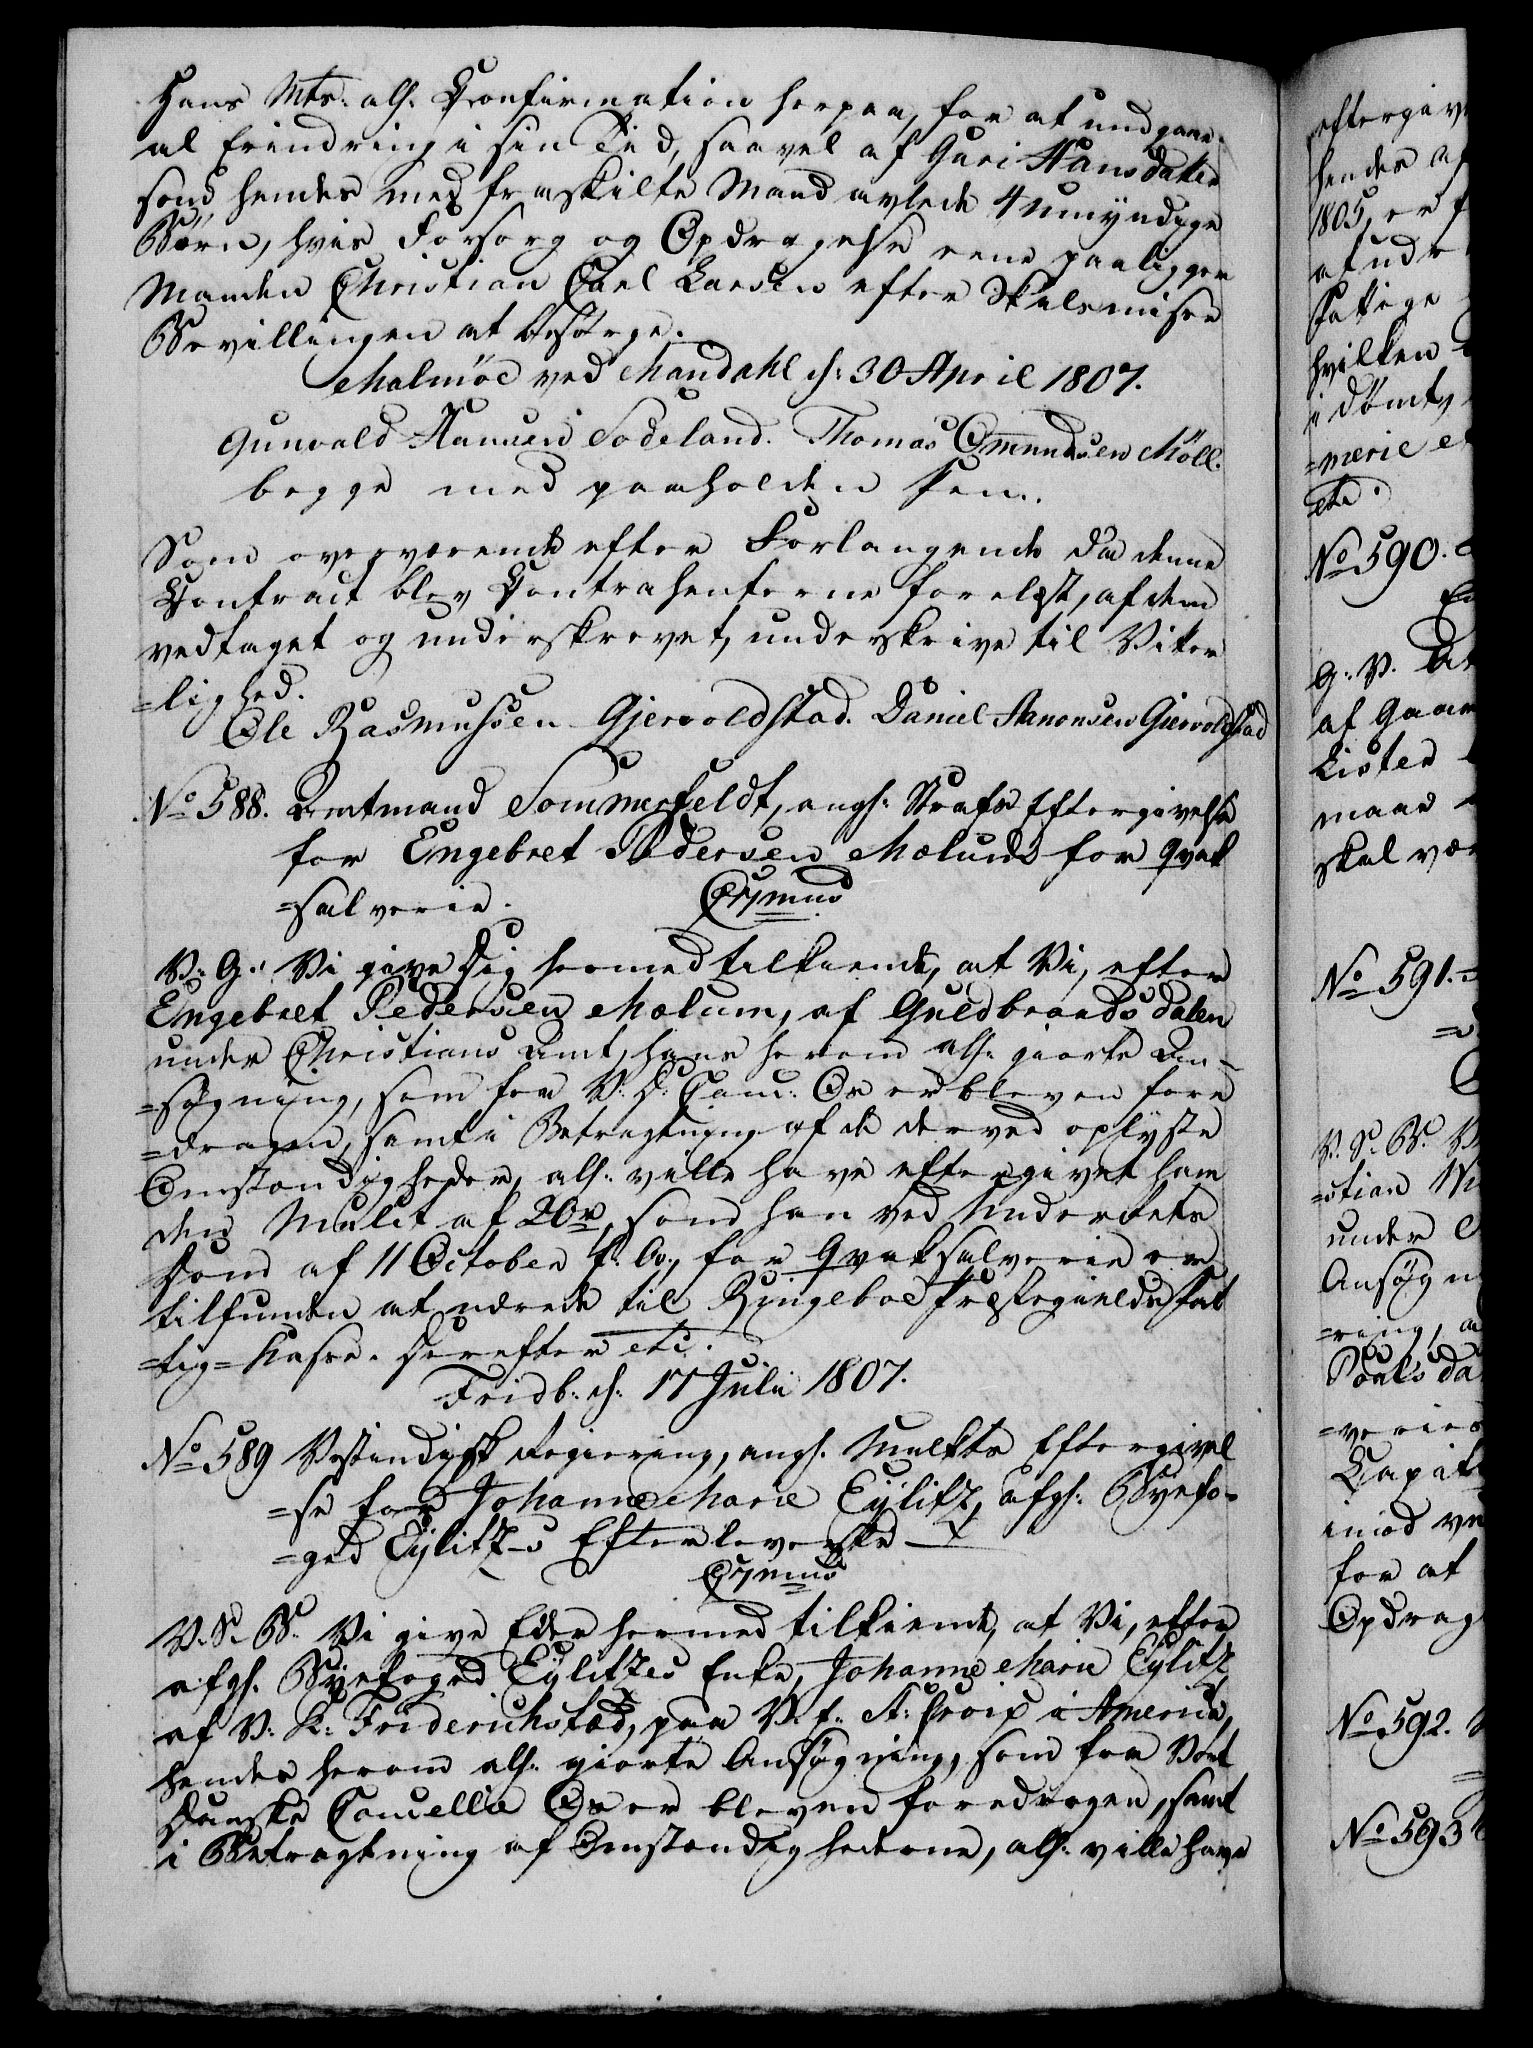 Hans Mts: allh. Confirmation herpaa, for at undgaae
al Erindring i sin Tid, saavel af Guri Hansdatter
som hendes med fraskilte Mand avlede 4 umyndige
Børn, hvis Forsorg og Opdragelse eene paaligger
Manden Christian Carl Larsen efter Skilsmisse
Bevillingen at besørge.
Malmöe ved Mandahl d: 30 April 1807.
Gunvald Hansen Sodeland. Thomas Ommundsen Möll.
begge med paaholden Pen.
Som overværende efter Forlangende da denne
Contract blev Contrahenterne forelæst, af dem
vedtaget og underskrevet, underskrive til Vitter
=lighed.
Ole Rasmussen Gjervoldstad. Daniel Aanonsen Giervoldstad
No 588. Amtmand Sommerfeldt, angl: Straffs Eftergivelse
for Engebret Pedersen Mælum for Qvak
=salverie.
V: G: Vi give Dig hermed tilkiende, at Vi, efter
Engebret Pedersen Mælum, af Guldbrandsdalen
under Christians Amt, hans herom allh: giorte An-
=søgning, som for V: D: Canc: Os er bleven fore
=dragen, samt i Betragtning af de derved oplyste
Omstændigheder, allh: ville have eftergivet ham
den Mulct af 20 rd, som han ved Underrets
Dom af 11 October f: A:, for Qvaksalverie er
tilfunden at udrede til Ringeboe Præstegields Fat
=tig=Kasse. Derefter etc.
Fridb: d: 17 Juli 1807.
No 589 Vestindisk Regiering, angl. Mulkts Eftergivel
=se for Johanne Marie Eylitz, afgl: Byefo-
=ged Eylitz-s Efterleverske
V. S. B. Vi give Eder hermed tilkiende, at Vi, efter
afgl. Byefoged Eylitzes Enke, Johanne Marie Eylitz,
af V: K: Friderichstæd, paa V: E: St: Croix i America,
hendes herom allh: giorte Ansøgning, som for Vort
Danske Cancellie Os er bleven foredragen, samt
i Betragtning af Omstændighederne, allh: ville have
eftergive
hendes af
1805, er f
at udr
Fattige
hvilken
i dömt,
=merie e
etc.
No 590.
G: V.
af Gaar
Lister
maae
skal vær
No 591.
V. S. B. V
=stian
under
Ansøgn
=ring, a
Poulsda
=veries
Capit
imod ve
for at
Opdrag
No 592.
No 593